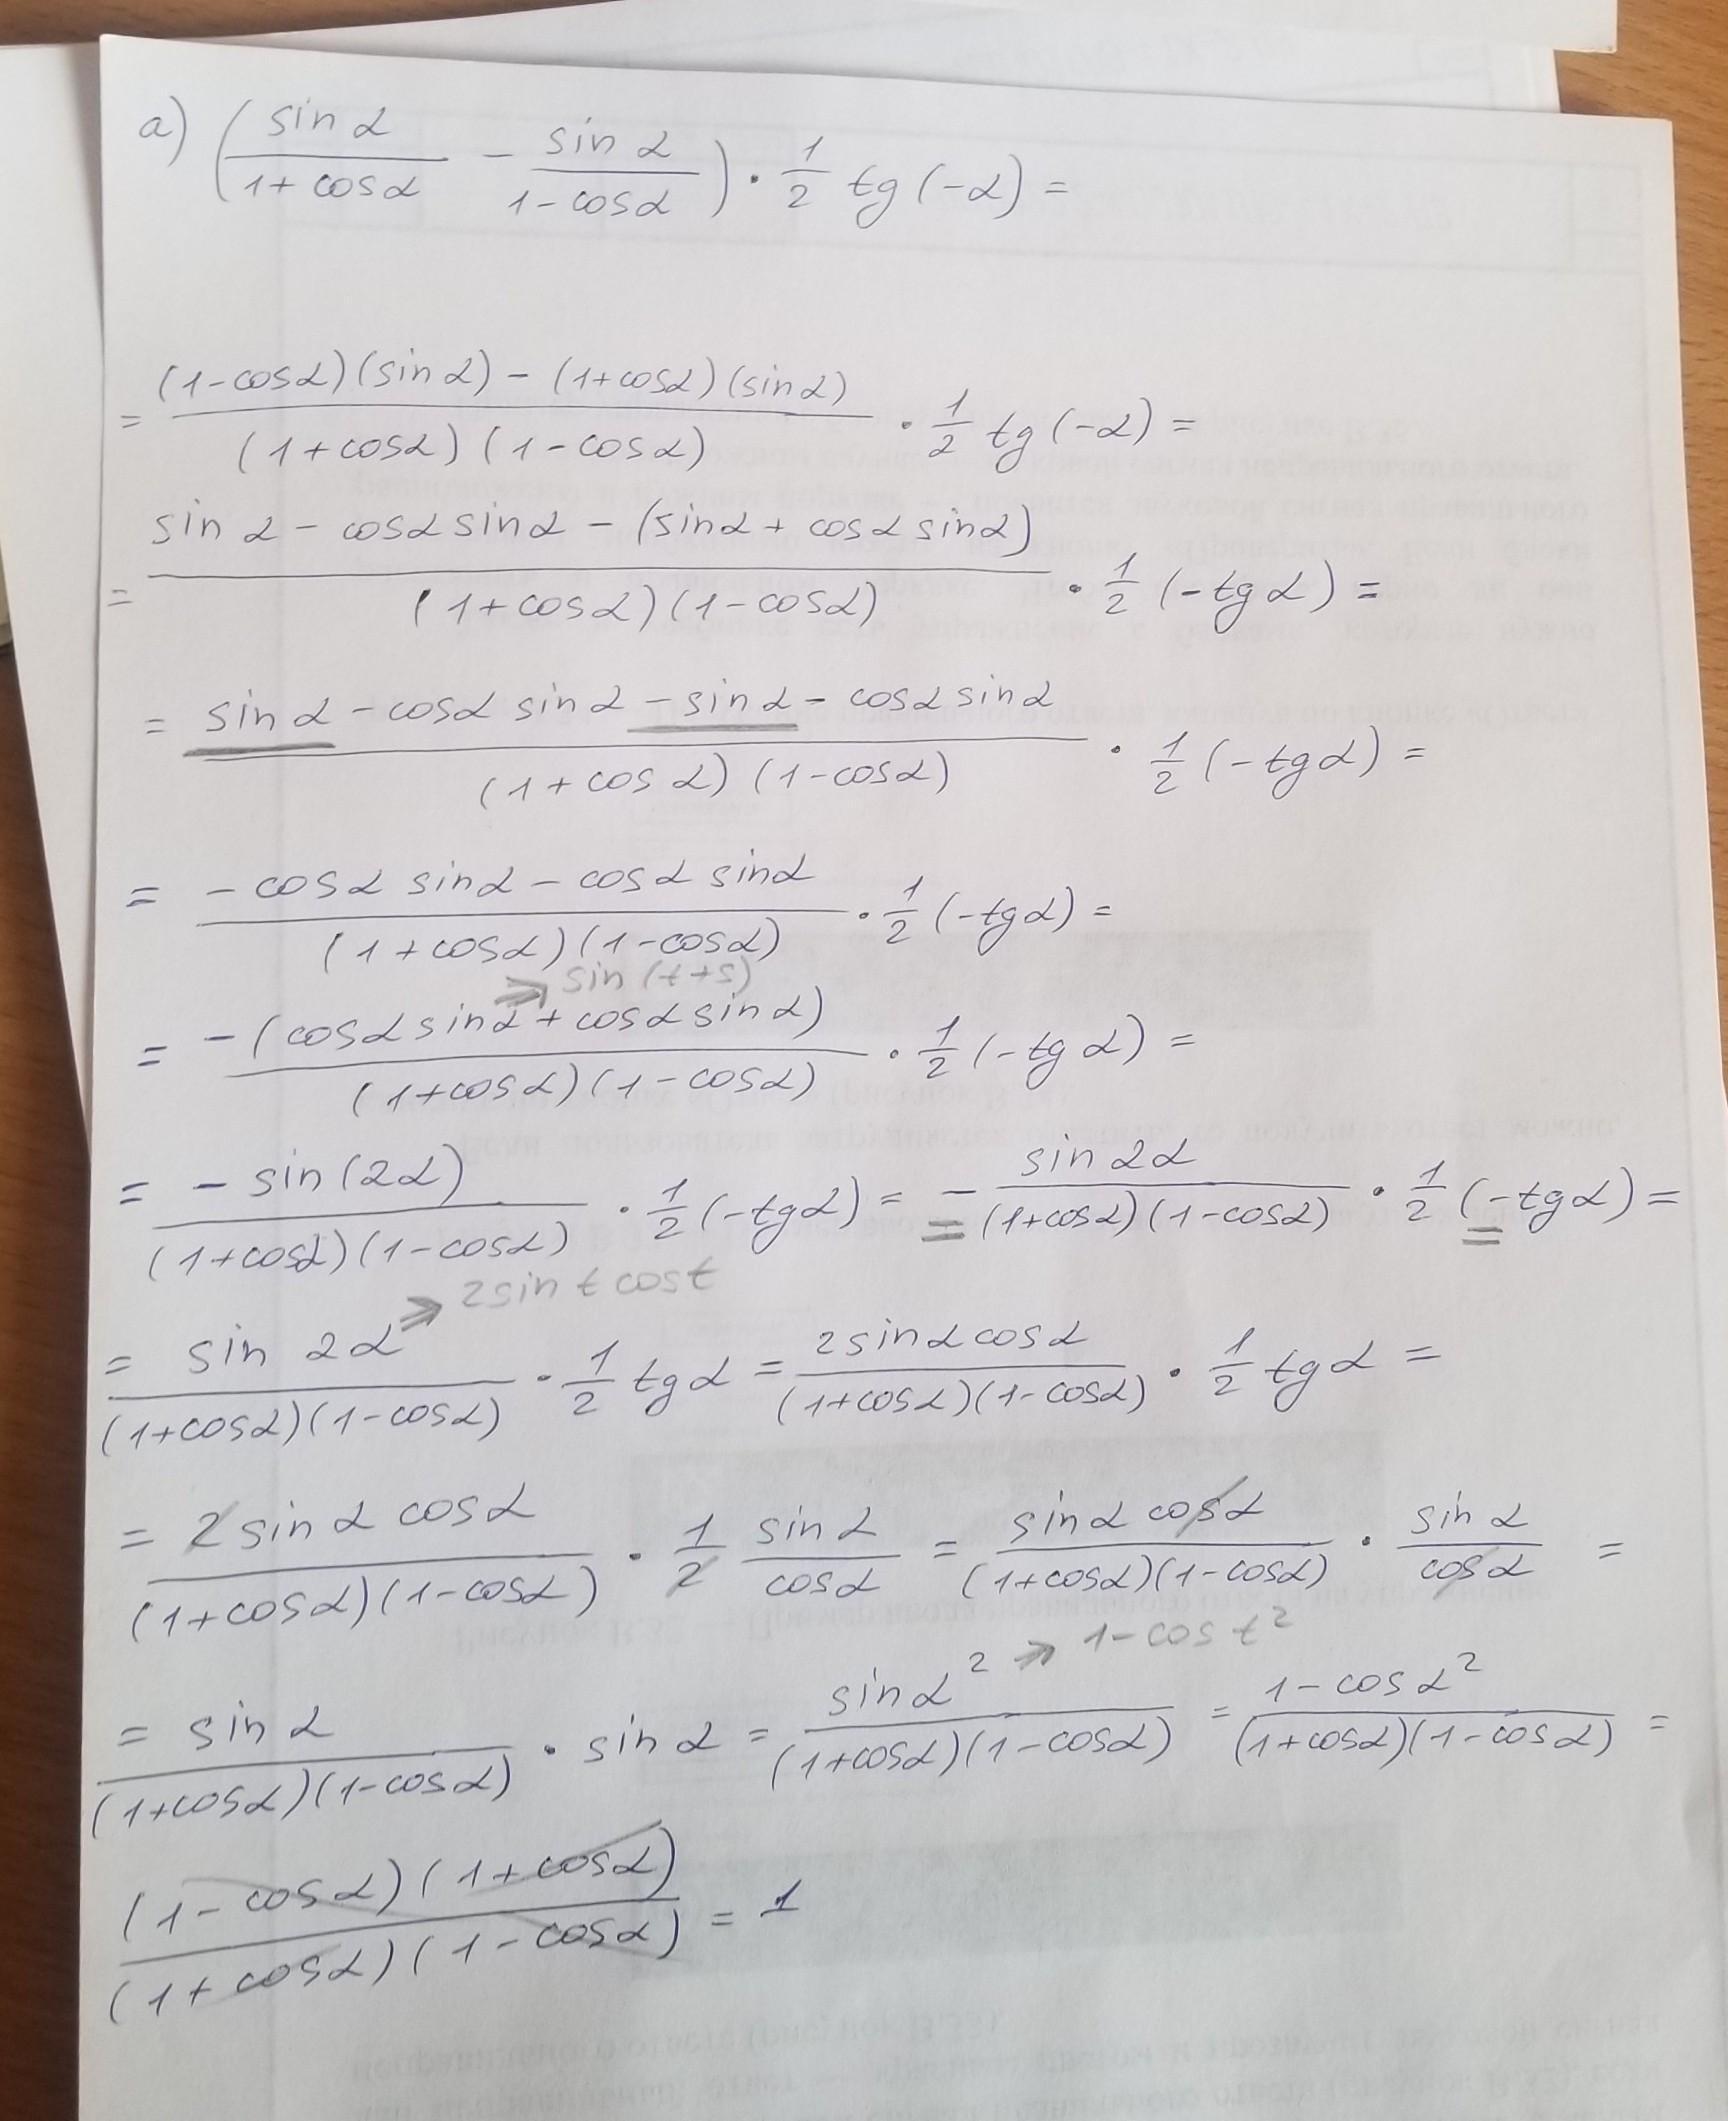 а) (sin α / (1 + cos α) - sin α / (1 - cos α)) · 1/2 tg (-α) =
= ((1 - cos α) (sin α) - (1 + cos α) (sin α)) / ((1 + cos α) (1 - cos α)) · 1/2 tg (-α) =
= (sin α - cos α sin α - (sin α + cos α sin α)) / ((1 + cos α) (1 - cos α)) · 1/2 (-tg α) =
= (sin α - cos α sin α - sin α - cos α sin α) / ((1 + cos α) (1 - cos α)) · 1/2 (-tg α) =
= (-cos α sin α - cos α sin α) / ((1 + cos α) (1 - cos α)) · 1/2 (-tg α) =
⇒ sin (t + s)
= -(cos α sin α + cos α sin α) / ((1 + cos α) (1 - cos α)) · 1/2 (-tg α) =
= -sin (2α) / ((1 + cos α) (1 - cos α)) · 1/2 (-tg α) = - sin 2α / ((1 + cos α) (1 - cos α)) · 1/2 (-tg α) =
⇒ 2 sin t cos t
= sin 2α / ((1 + cos α) (1 - cos α)) · 1/2 tg α = 2 sin α cos α / ((1 + cos α) (1 - cos α)) · 1/2 tg α =
= 2 sin α cos α / ((1 + cos α) (1 - cos α)) · 1/2 sin α / cos α = sin α cos α / ((1 + cos α) (1 - cos α)) · sin α / cos α =
⇒ 1 - cos t²
= sin α / ((1 + cos α) (1 - cos α)) · sin α = sin α² / ((1 + cos α) (1 - cos α)) = (1 - cos α²) / ((1 + cos α) (1 - cos α)) =
(1 - cos α) (1 + cos α) / ((1 + cos α) (1 - cos α)) = 1